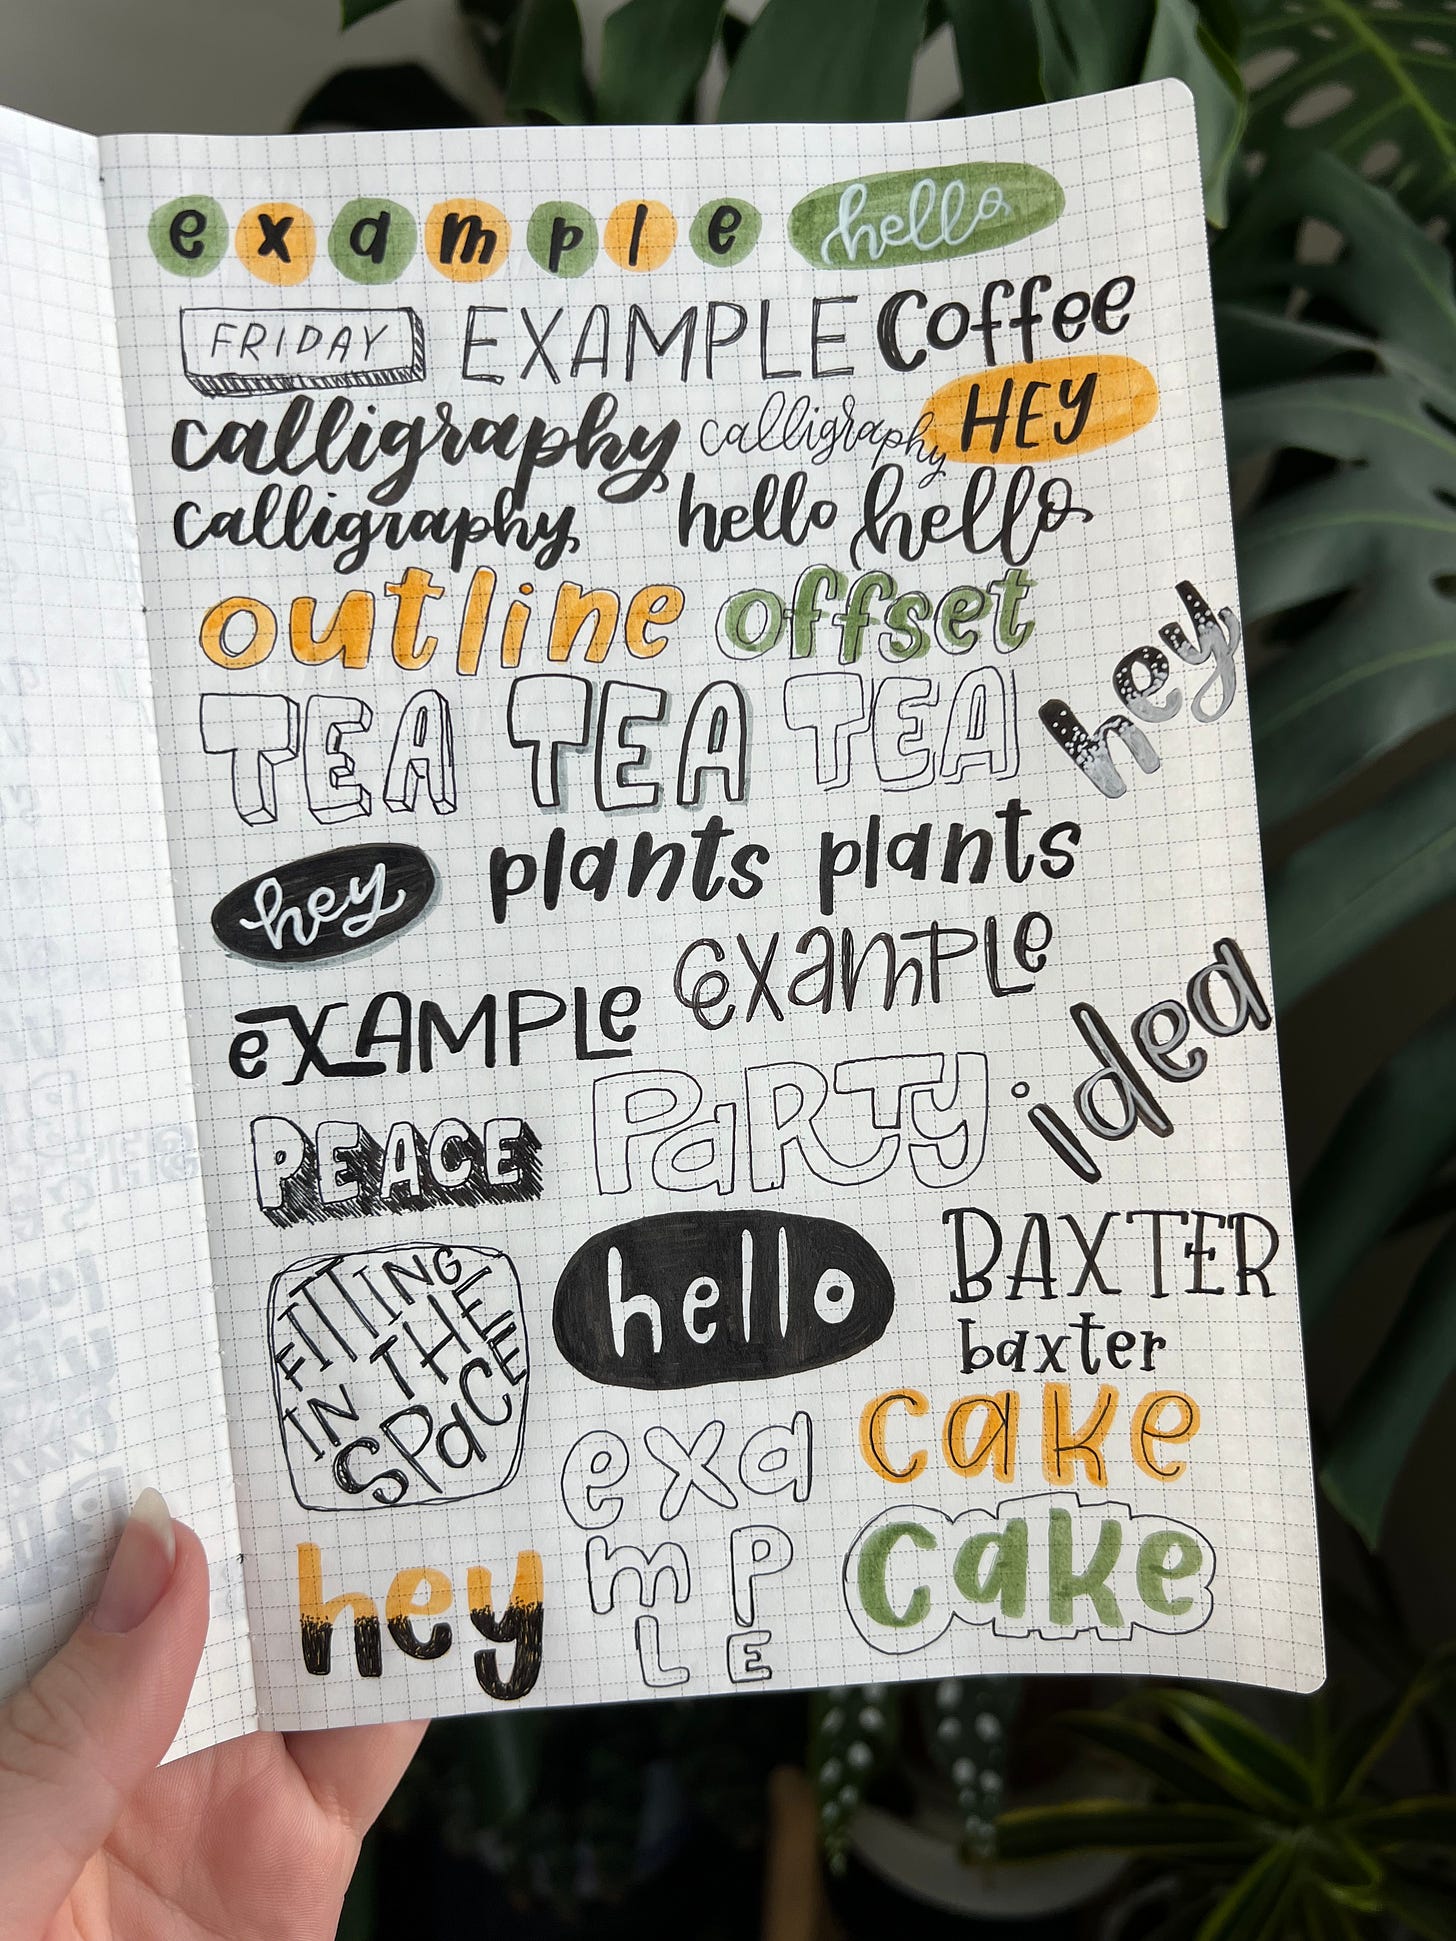 example hello
FRIDAY EXAMPLE Coffee
calligraphy calligraphy HEY
calligraphy hello hello
outline offset
TEA TEA TEA hey
hey plants plants
eXAMPLe examPLe
PEACE PaRTy idea
FITTING
IN THE
SPaCE
hello
BAXTER
baxter
cake
exa
mP
LE
cake
hey